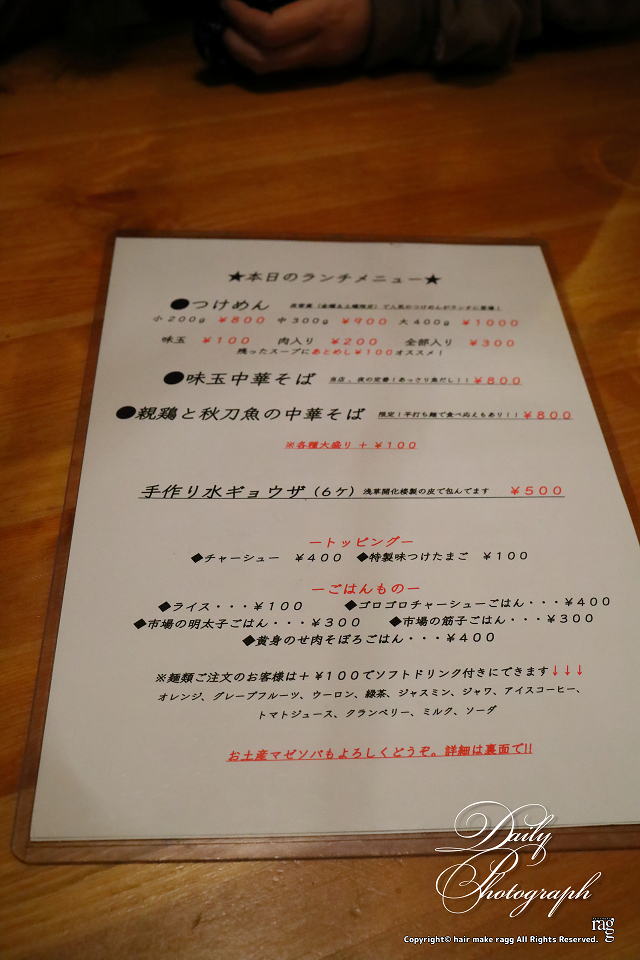 ★本日のランチメニュー★
●つけめん 夜営業（金曜＆土曜限定）で人気のつけめんがランチに登場！
小２００g ￥８００ 中３００g ￥９００ 大４００g ￥１０００
味玉 ￥１００ 肉入り ￥２００ 全部入り ￥３００
残ったスープにあとめし￥１００オススメ！
●味玉中華そば 当店、夜の定番！あっさり魚だし！！￥８００
●親鶏と秋刀魚の中華そば 限定！平打ち麺で食べ応えもあり！！￥８００
※各種大盛り＋￥１００
手作り水ギョウザ（６ケ）浅草開化楼製の皮で包んでます ￥５００
ートッピングー
◆チャーシュー ￥４００ ◆特製味つけたまご ￥１００
ーごはんものー
◆ライス・・・￥１００ ◆ゴロゴロチャーシューごはん・・・￥４００
◆市場の明太子ごはん・・・￥３００ ◆市場の筋子ごはん・・・￥３００
◆黄身のせ肉そぼろごはん・・・￥４００
※麺類ご注文のお客様は＋￥１００でソフトドリンク付きにできます↓↓↓
オレンジ、グレープフルーツ、ウーロン、緑茶、ジャスミン、ジャワ、アイスコーヒー、
トマトジュース、クランベリー、ミルク、ソーダ
お土産マゼソバもよろしくどうぞ。詳細は裏面で!!
Daily
Photograph
ragg
Copyright© hair make ragg All Rights Reserved.